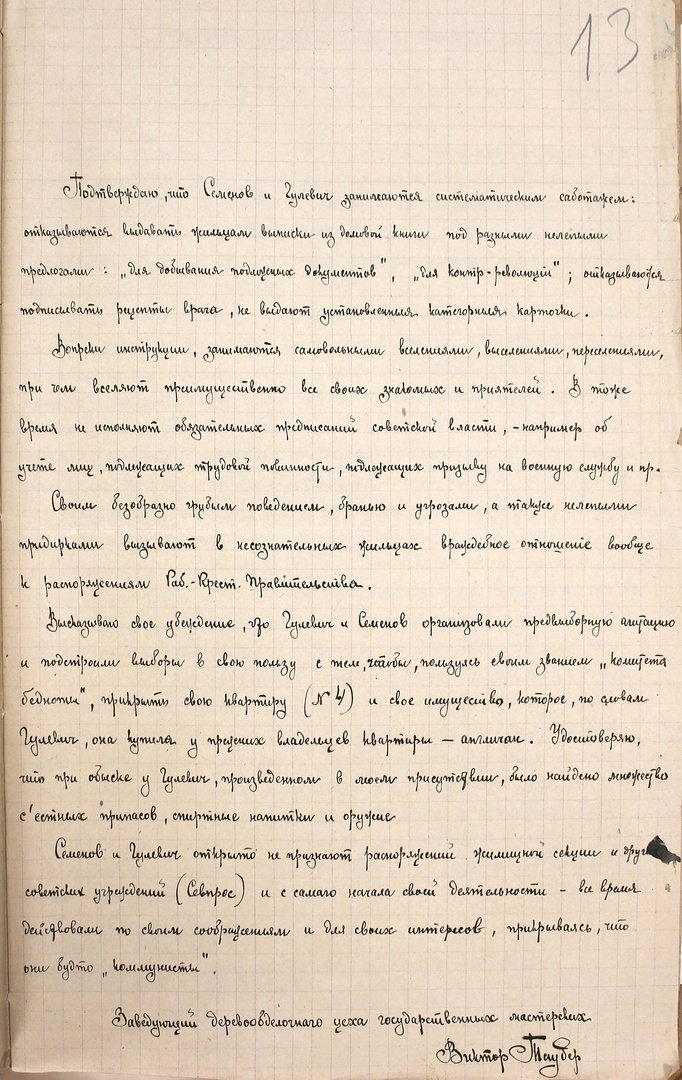 13
Подтверждаю, что Семенов и Гулевич занимаются систематическим саботажем:
отказываются выдавать жильцам выписки из домовой книги под разными нелепыми
предлогами: „для добывания подложных документов", „для контр-революции"; отказываются
подписывать рецепты врача, не выдают установленныя категорныя карточки.
Вопреки инструкции, занимаются самовольными вселениями, выселениями, переселениями,
при чем вселяют преимущественно все своих знакомых и приятелей. В тоже
время не исполняют обязательных предписаний советской власти, - например об
учете лиц, подлежащих трудовой повинности, подлежащих призыву на военную службу и пр.
Своим безобразно грубым поведением, бранью и угрозами, а также нелепыми
придирками вызывают в несознательных жильцах враждебное отношение вообще
к распоряжениям Раб.-Крест. Правительства.
Высказываю свое убеждение, что Гулевич и Семенов организовали предвыборную агитацию
и подстроили выборы в свою пользу с тем, чтобы, пользуясь своим званием „комитета
бедноты", прикрыть свою квартиру (№ 4) и свое имущество, которое, по словам
Гулевич, она купила у прежних владельцев квартиры — англичан. Удостоверяю,
что при обыске у Гулевич, произведенном в моем присутствии, было найдено множество
с'естных припасов, спиртные напитки и оружие
Семенов и Гулевич открыто не признают распоряжений жилищной секции и
советских учреждений (Севпрос) и с самого начала своей деятельности - все время
действовали по своим соображениям и для своих интересов, прикрываясь, что
они будто „коммунисты".
Заведующий деревообделочного цеха государственных мастерских
Виктор Таубер